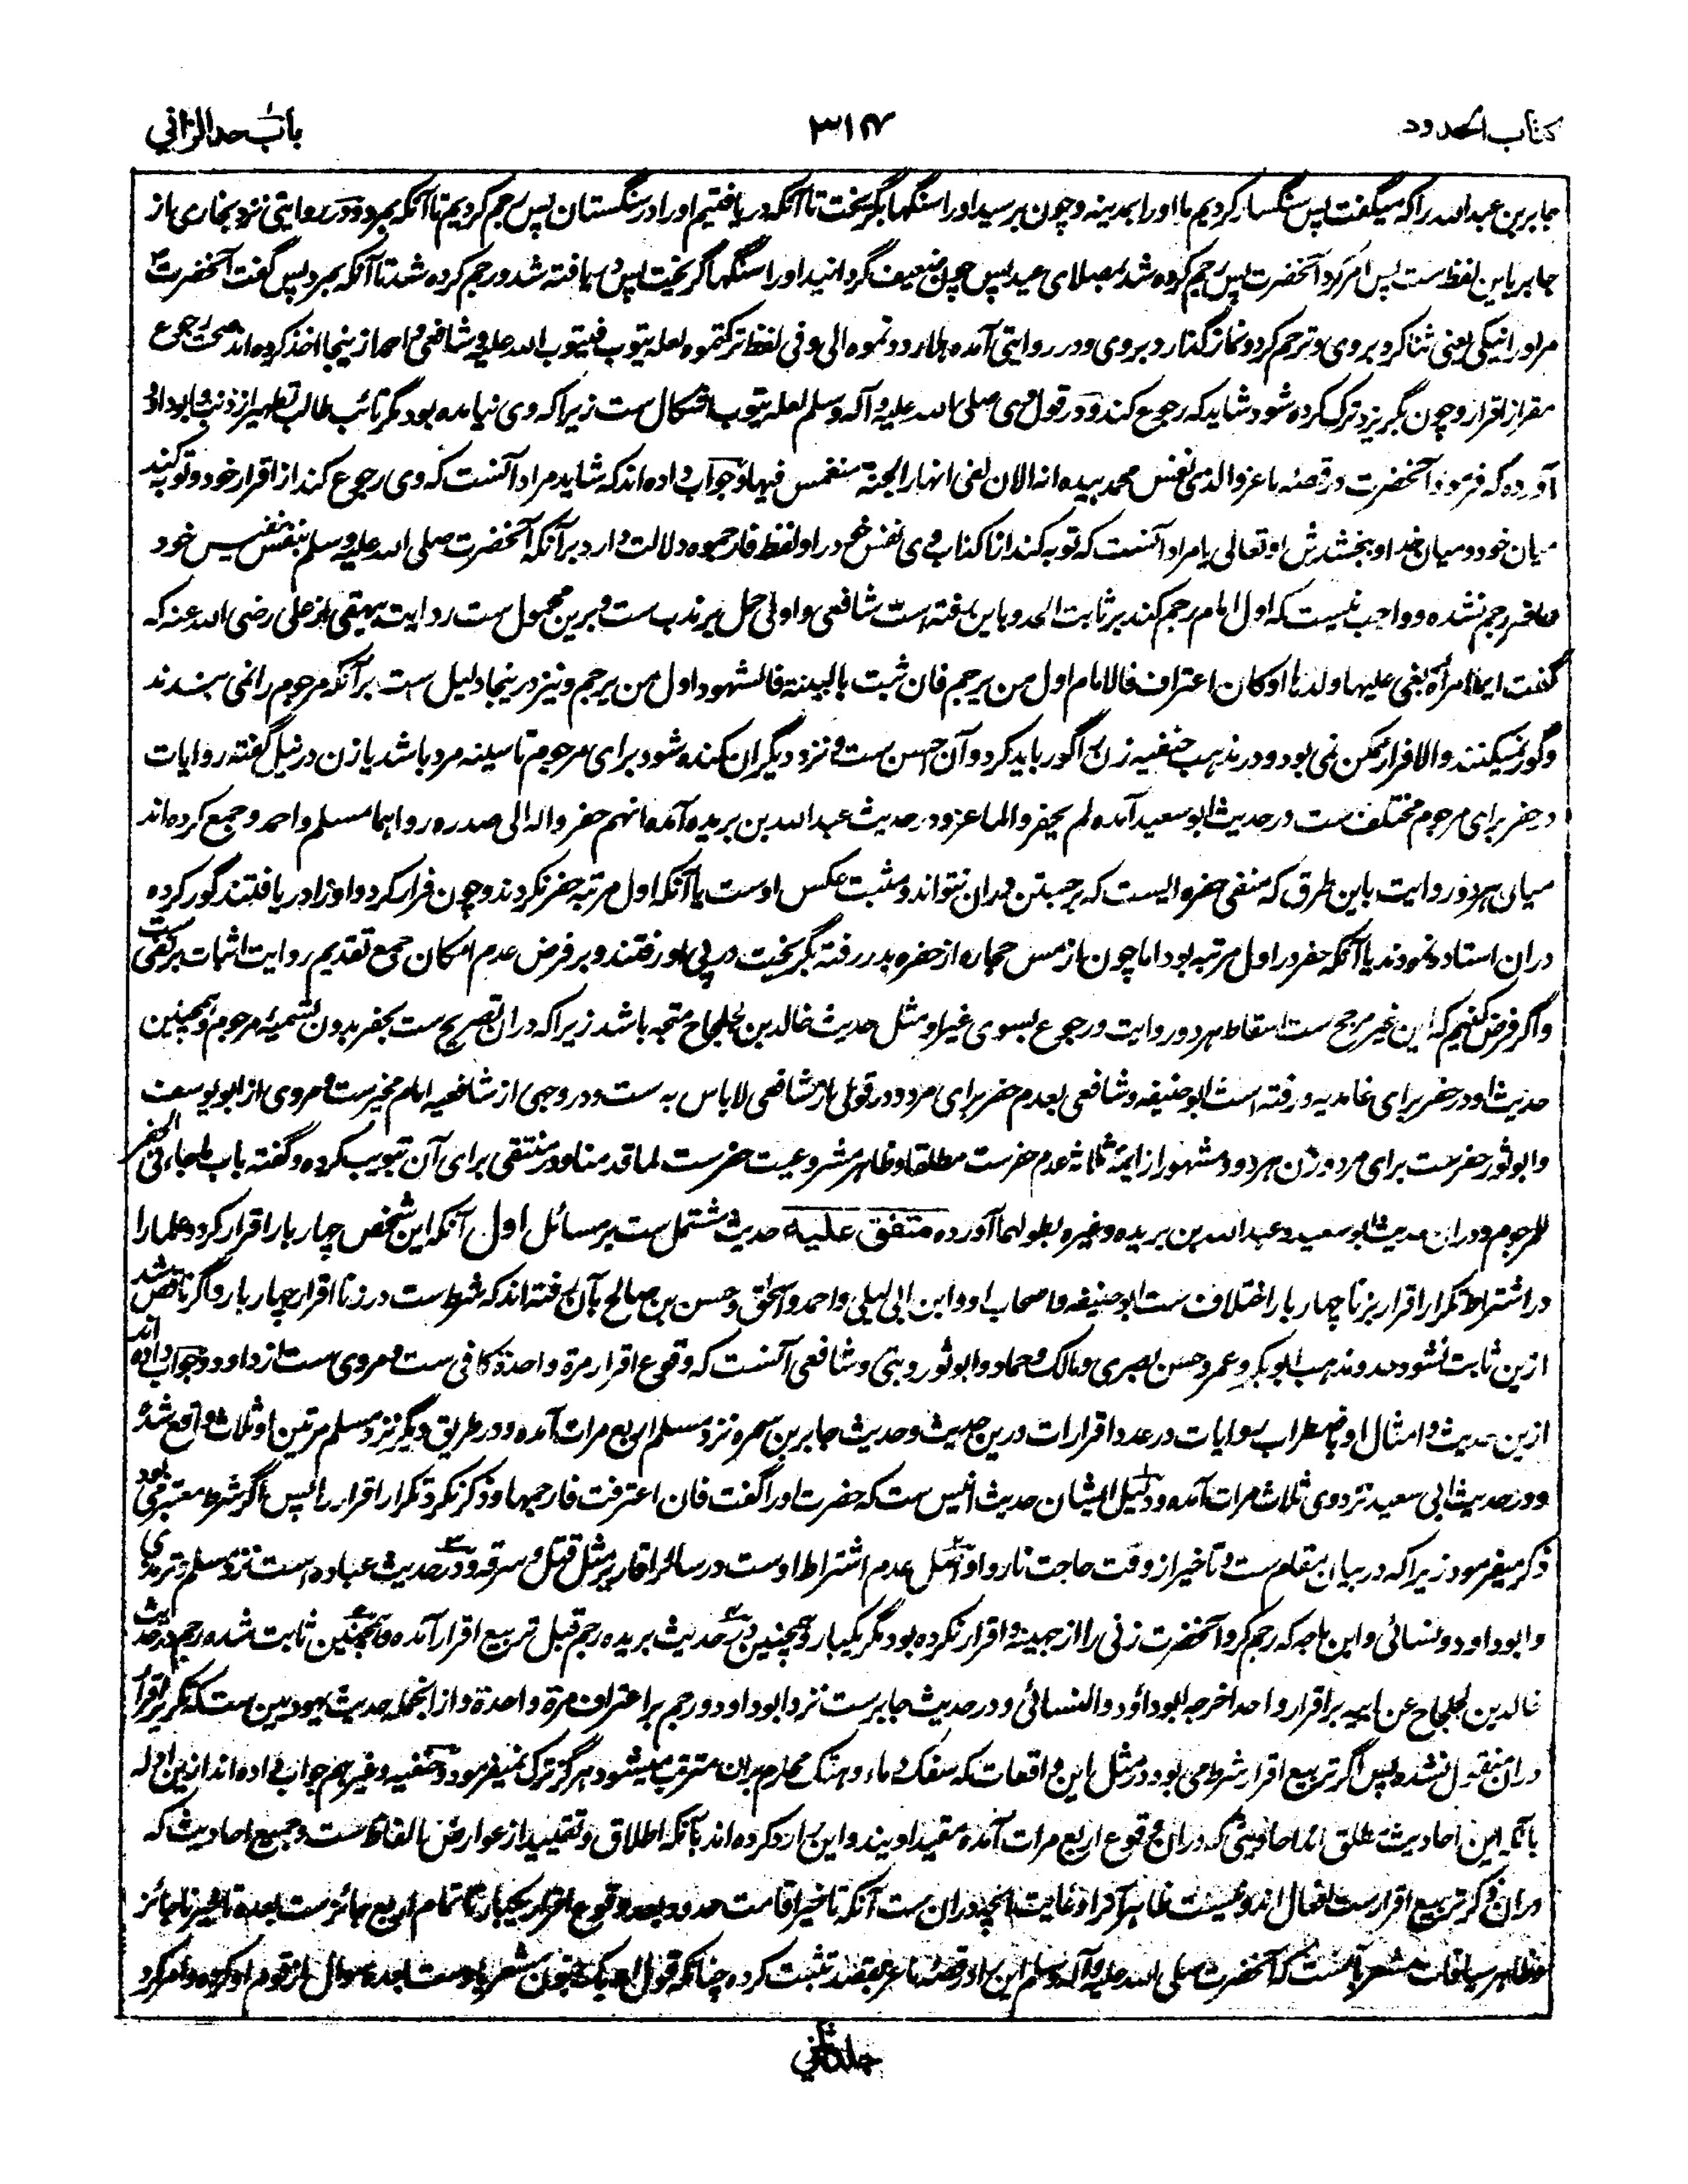 کتاب الحدود
۳۱۴
باب حد الزانی
جابر بن عبدالله را که میگفت پس سنگسار کردیم ما او را بمدینه و چون برسید او را سنگها بگریخت تا آنکه دریافتیم او را در سنگستان پس رجم کردیم تا آنکه بمرد و در روایتی نزد بخاری از
جابر باین لفظ ست پس امر کرد آنحضرت پس رجم کرده شد بمصلای عید پس چون ضعیف گردانید او را سنگها گریخت پس یافته شد و رجم کرده شد تا آنکه بمرد پس گفت آنحضرت
مر او را نیکی یعنی ثنا کرد بر وی و ترحم کرد و نماز گذارد بر وی و در روایتی آمده هلا رددتموه الی و فی لفظ ترکتموه لعله یتوب فیتوب الله علیه و شافعی و احمد ازینجا اخذ کرده اند صحت رجوع
مقر از اقرار و چون بگریزد ترک کرده شود شاید که رجوع کند و در قول وی صلی الله علیه و آله وسلم لعله یتوب اشکال ست زیرا که وی نیامده بود مگر تائب طالب تطهیر از ذنب ابو داود
آورده که فرمود آنحضرت در قصهٔ ماعز والذی نفس محمد بیده انه الان لفی انهار الجنة منغمس فیها و جواب داده اند که شاید مراد آنست که وی رجوع کند از اقرار خود و توبه کند
میان خود و میان خدا و ببخشدش او تعالی یا مراد آنست که توبه کند از اکذاب نفس خود و لفظ فارجموه دلالت دارد بر آنکه آنحضرت صلی الله علیه وسلم بنفس نفیس خود
حاضر رجم نشده و واجب نیست که اول امام رجم کند بر ثابت الحد و باین رفته است شافعی و اولی حمل بر ندب ست و برین محمول ست روایت بیهقی از علی رضی الله عنه که
گفت ایما امرأة نعی علیها ولدها او کان اعتراف فالامام اول من یرجم فان ثبت بالبینة فالشهود اول من یرجم و نیز درینجا دلیل ست بر آنکه مرجوم را نمی بندند
و گور نمیکنند والا فرار ممکن نمی بود و در مذهب حنفیه زن را گور باید کرد و آن احسن ست و نزد دیگران کنده شود برای مرجوم تا سینه مرد باشد یا زن در نیل گفته روایات
در حفر برای مرجوم مختلف ست در حدیث ابو سعید آمده لم یحفروا لماعز و در حدیث عبدالله بن بریده آمده انهم حفروا له الی صدره رواهما مسلم و احمد و جمع کرده اند
میان هر دو روایت باین طرق که منفی حفره ایست که برجستن بدران نتواند و مثبت عکس اوست یا آنکه اول مرتبه حفر نکردند و چون فرار کرد و او را دریافتند گور کرده
دران استاده نمودند یا آنکه حفر در اول مرتبه بود اما چون از مس حجاره از حفره بدر رفته بگریخت در پی او رفتند و بر فرض عدم امکان جمع تقدیم روایت اثبات بر نفی ست
و اگر فرض کنیم که این غیر مرجح ست اسقاط هر دو روایت و رجوع بسوی غیر او مثل حدیث خالد بن لجلاج متجه باشد زیرا که دران تصریح ست بحفر بدون تسمیهٔ مرجوم و همچنین
حدیث او در حفر برای غامدیه و رفته است ابو حنیفه و شافعی بعدم حفر برای مرد و در قولی از شافعی لا باس به ست و در وجهی از شافعیه امام مخیر ست و مروی از ابو یوسف
و ابو ثور حفر ست برای مرد و زن هر دو و مشهور از ایمهٔ ثلاثه عدم حفر ست مطلقا و ظاهر مشروعیت حفر ست لما قدمنا و در منتقی برای آن تبویب کرده و گفته باب ما جاء فی الحفر
للمرجوم و دران حدیث ابو سعید و عبدالله بن بریده وغیره بطولهما آورده متفق علیه حدیث مشتمل ست بر مسائل اول آنکه این شخص چهار بار اقرار کرد و علما را
در اشتراط تکرار اقرار بزنا چهار بار اختلاف ست ابو حنیفه و اصحاب او و ابن ابی لیلی و احمد و اسحق و حسن بن صالح بآن رفته اند که شرط ست در زنا اقرار چهار بار و اگر ناقص شد
ازین ثابت نشود حد و مذهب ابو بکر و عمر و حسن بصری و مالک و حماد و ابو ثور و بتی و شافعی آنست که وقوع اقرار مرة واحدة کافی ست و مروی ست از داود و جواب داده اند
ازین حدیث و امثال او باضطراب روایات در عدد اقرارات درین حدیث و حدیث جابر بن سمره نزد مسلم اربع مرات آمده و در طریق دیگر نزد مسلم مرتین او ثلاث واقع شده
و در حدیث ابی سعید نزد وی ثلاث مرات آمده و دلیل ایشان حدیث انیس ست که حضرت او را گفت فان اعترفت فارجمها و ذکر نکرد تکرار اقرار را پس اگر شرط معتبر می بود
ذکر میفرمود زیرا که در بیان مقام ست و تاخیر از وقت حاجت ناروا و اصل عدم اشتراط اوست در سائر اقاریر مثل قتل و سرقه و در حدیث عباده است نزد مسلم و ترمذی
و ابو داود و نسائی و ابن ماجه که رجم کرد آنحضرت زنی را از جهینه و اقرار نکرده بود مگر یکبار و همچنین در حدیث بریده رجم قبل تربیع اقرار آمده و همچنین ثابت شده رجم در حدیث
خالد بن لجلاج عن ابیه بر اقرار واحد اخرجه ابو داؤد والنسائی و در حدیث جابر ست نزد ابو داود رجم بر اعتراف مرة واحدة و از انجمله حدیث یهودیین ست که تکریر اقرار
دران منقول نشده پس اگر تربیع اقرار شرط می بود در مثل این واقعات که سفک دماء و هتک محارم بدان مترتب میشود هرگز ترک نمیفرمود و حنفیه وغیرهم جواب داده اند ازین ادله
بآنکه این احادیث مطلق اند احادیثی که دران وقوع اربع مرات آمده مقید اویند و این را رد کرده اند بآنکه اطلاق و تقیید از عوارض الفاظ ست و جمیع احادیث که
دران ذکر تربیع اقرار ست افعال اند و نیست ظاهر افعال را و غایت آنچه دران ست آنکه تاخیر اقامت حدود بعد وقوع اقرار یکبار تا تمام اربع جائز ست
و ظاهر سیاقات مشعر بآنست که آنحضرت صلی الله علیه وآله وسلم این را در قصهٔ ماعز بقصد تثبت کرده چنانکه قول ابک جنون مشعر باوست بعده سوال از قوم او کرده و امر کرد
جلد ثانی